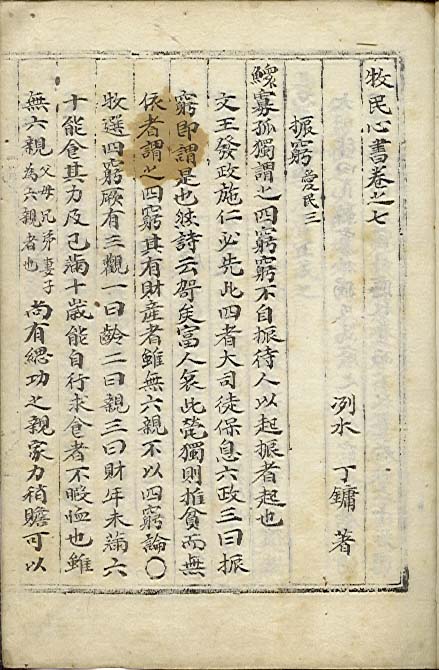 牧民心書卷之七
洌水 丁鏞 著
振窮 愛民三
鰥寡孤獨謂之四窮窮不自振待人以起振者起也
文王發政施仁必先此四者大司徒保息六政三曰振
窮卽謂是也然詩云哿矣富人哀此煢獨則惟貧而無
依者謂之四窮其有財産者雖無六親不以四窮論〇
牧選四窮厥有三觀一曰齡二曰親三曰財年未滿六
十能食其力及已滿十歲能自行求食者不暇恤也雖
無六親 父母兄弟妻子
為六親者也 尚有緦功之親家力稍贍可以